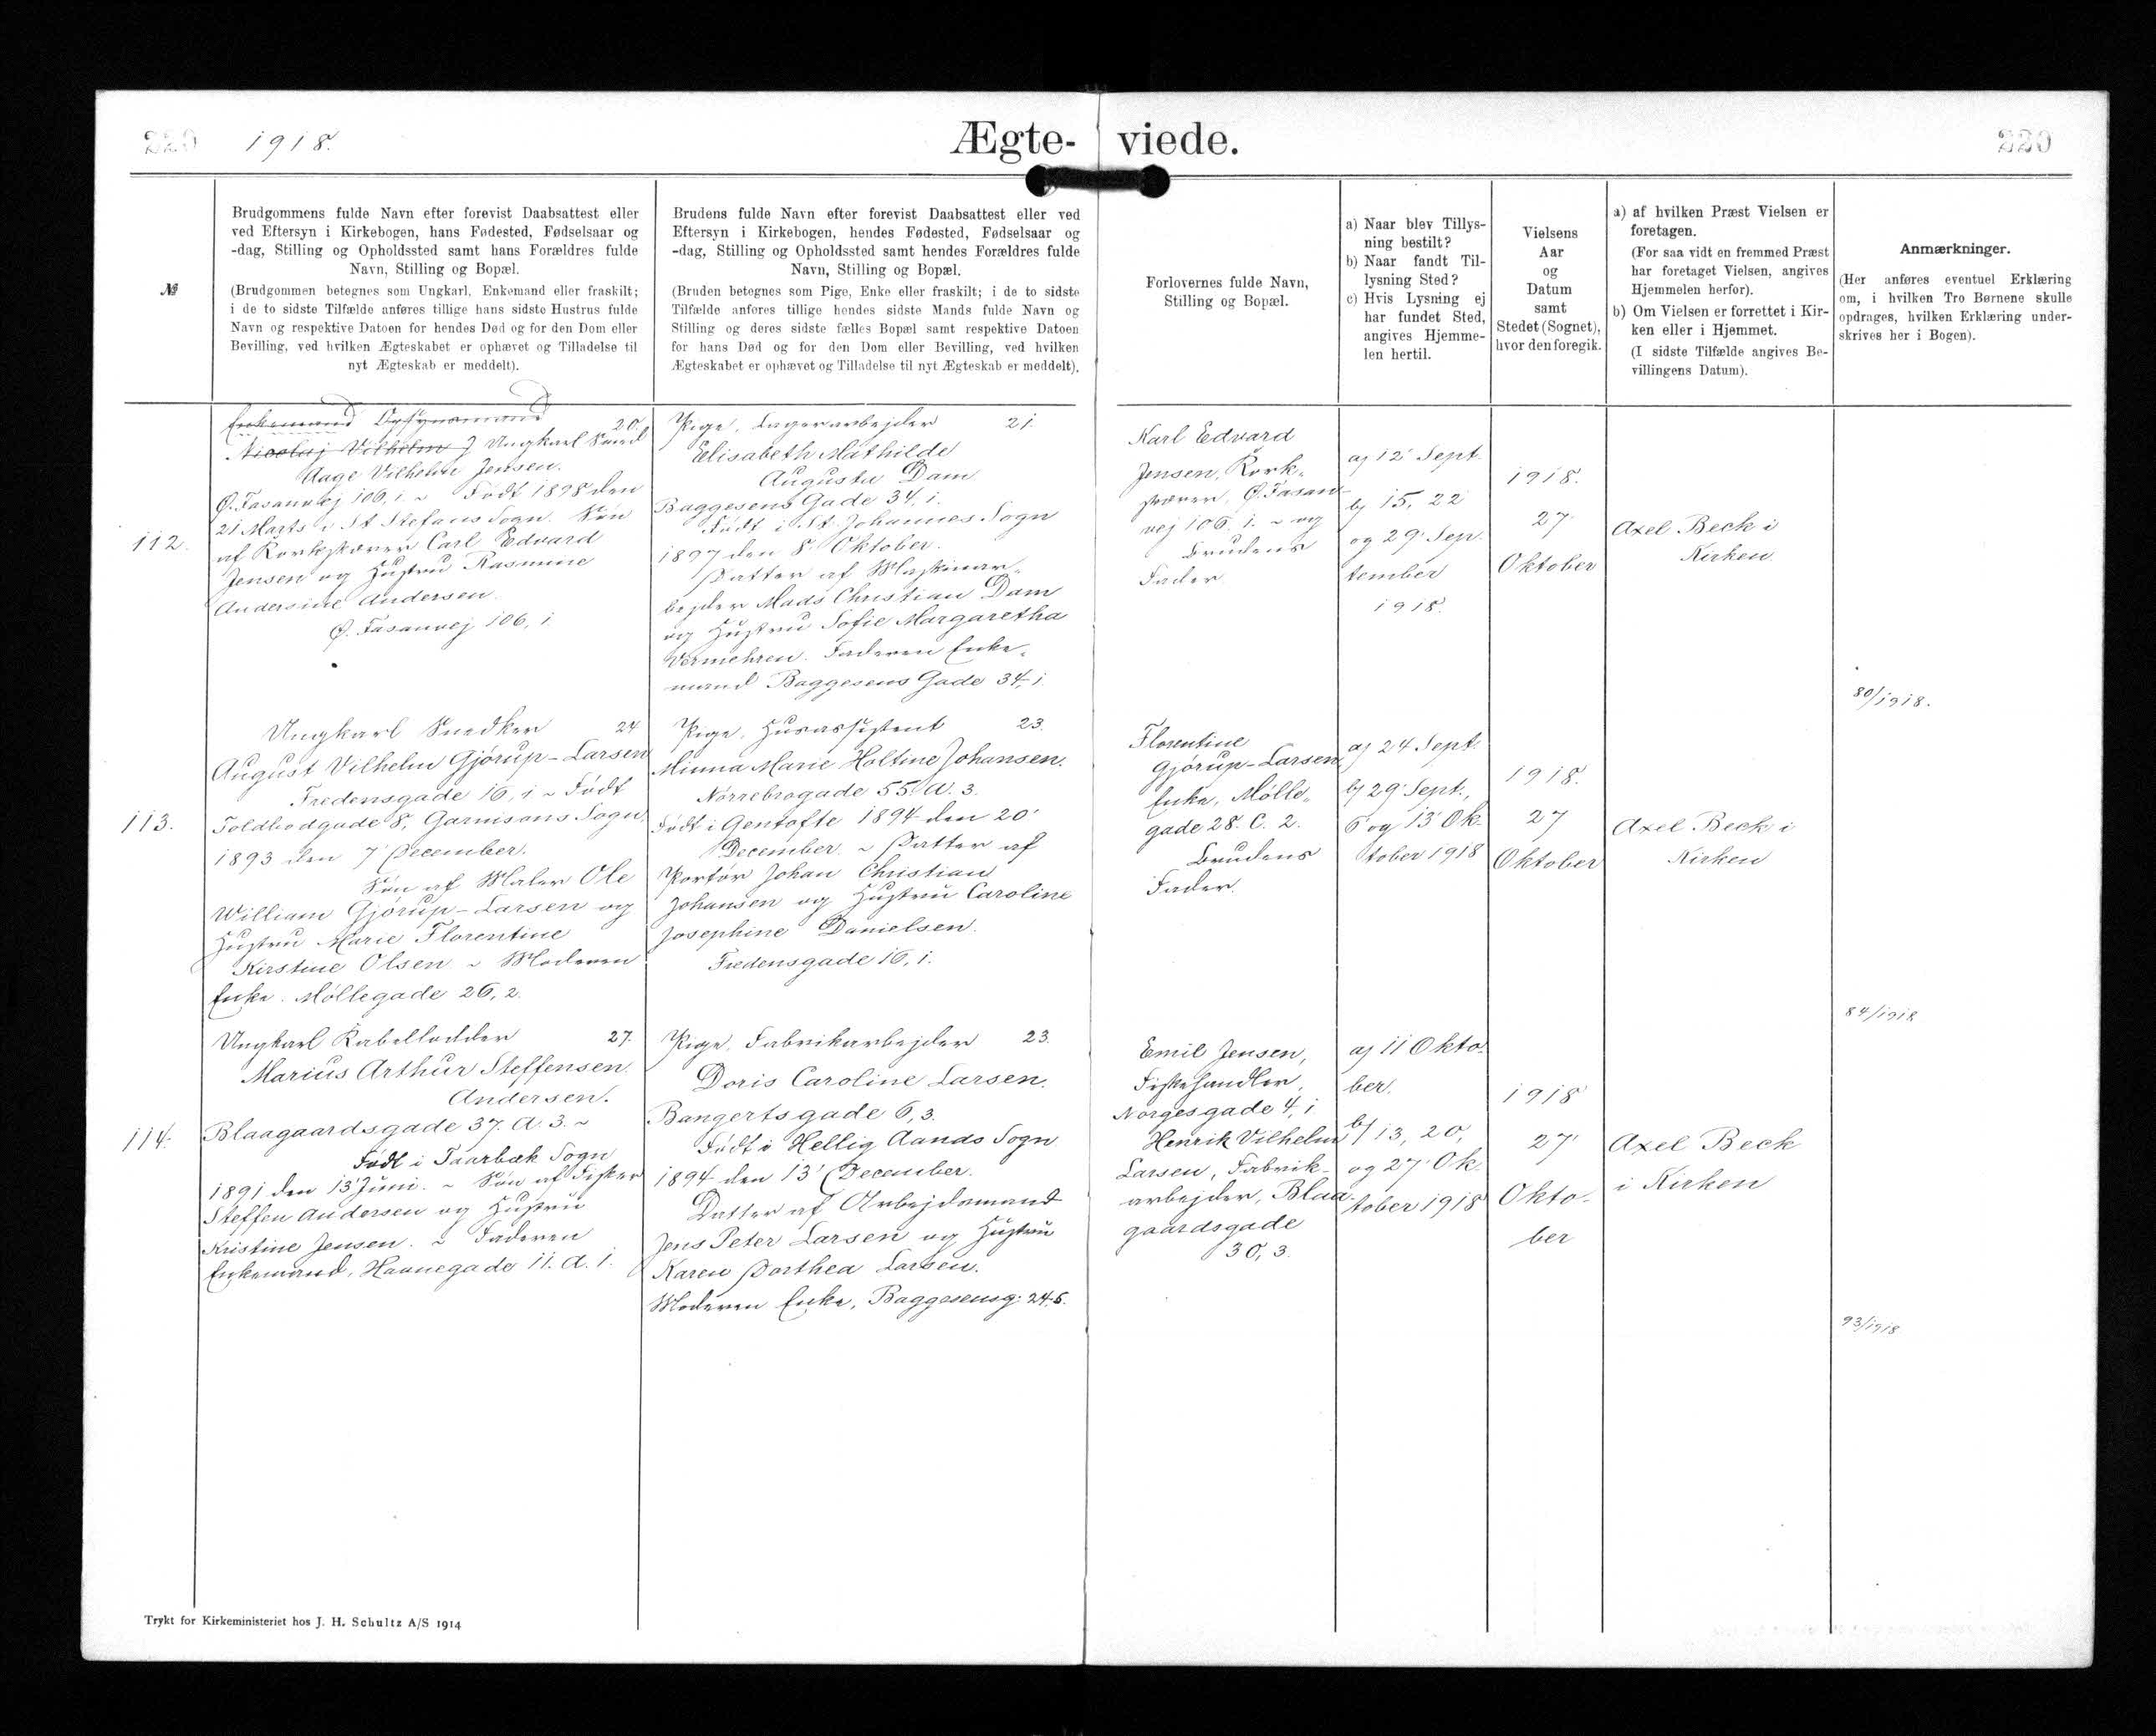 220 1918. Ægte- viede. 220
№
Brudgommens fulde Navn efter forevist Daabsattest eller
ved Eftersyn i Kirkebogen, hans Fødested, Fødselsaar og
-dag, Stilling og Opholdssted samt hans Forældres fulde
Navn, Stilling og Bopæl.
(Brudgommen betegnes som Ungkarl, Enkemand eller fraskilt;
i de to sidste Tilfælde anføres tillige hans sidste Hustrus fulde
Navn og respektive Datoen for hendes Død og for den Dom eller
Bevilling, ved hvilken Ægteskabet er ophævet og Tilladelse til
nyt Ægteskab er meddelt).
Brudens fulde Navn efter forevist Daabsattest eller ved
Eftersyn i Kirkebogen, hendes Fødested, Fødselsaar og
-dag, Stilling og Opholdssted samt hendes Forældres fulde
Navn, Stilling og Bopæl.
(Bruden betegnes som Pige, Enke eller fraskilt; i de to sidste
Tilfælde anføres tillige hendes sidste Mands fulde Navn og
Stilling og deres sidste fælles Bopæl samt respektive Datoen
for hans Død og for den Dom eller Bevilling, ved hvilken
Ægteskabet er ophævet og Tilladelse til nyt Ægteskab er meddelt).
Forlovernes fulde Navn,
Stilling og Bopæl.
a) Naar blev Tillys-
ning bestilt?
b) Naar fandt Til-
lysning Sted?
c) Hvis Lysning ej
har fundet Sted,
angives Hjemme-
len hertil.
Vielsens
Aar
og
Datum
samt
Stedet (Sognet),
hvor den foregik.
a) af hvilken Præst Vielsen er
foretagen.
(For saa vidt en fremmed Præst
har foretaget Vielsen, angives
Hjemmelen herfor).
b) Om Vielsen er forrettet i Kir-
ken eller i Hjemmet.
(I sidste Tilfælde angives Be-
villingens Datum).
Anmærkninger.
(Her anføres eventuel Erklæring
om, i hvilken Tro Børnene skulle
opdrages, hvilken Erklæring under-
skrives her i Bogen).
112.
Enkemand Opsynsmand
20.
Nicolaj Vilhelm J Ungkarl Smed
Aage Vilhelm Jensen.
Ø. Fasanvej 106, 1. ~ Født 1898 den
21 Marts i St Stefans Sogn. Søn
af Korkskærer Carl Edvard
Jensen og Hustru Rasmine
Andersine Andersen.
Ø. Fasanvej 106, 1.
Pige, Lagerarbejder 21.
Elisabeth Mathilde
Augusta Dam
Baggesens Gade 34, 1.
Født i St. Johannes Sogn
1897 den 8' Oktober.
Datter af Maskinar-
bejder Mads Christian Dam
og Hustru Sofie Margaretha
Vermehren. Faderen Enke-
mand Baggesens Gade 34, 1.
Karl Edvard
Jensen, Kork-
skærer, Ø. Fasan-
vej 106. 1. ~ og
Brudens
Fader
a) 12' Sept.
b) 15, 22
og 29' Sep-
tember
1918.
1918.
27'
Oktober
Axel Beck i
Kirken.
80/1918.
113.
Ungkarl Snedker 24
August Vilhelm Gjørup-Larsen
Fredensgade 16, 1 ~ Født
Toldbodgade 8, Garnisons Sogn,
1893 den 7' December.
Søn af Maler Ole
William Gjørup-Larsen og
Hustru Marie Florentine
Kirstine Olsen ~ Moderen
Enke. Møllegade 26, 2.
Pige, Husassistent 23.
Minna Marie Holtine Johansen.
Nørrebrogade 55. A. 3.
Født i Gentofte 1894 den 20'
December. ~ Datter af
Portør Johan Christian
Johansen og Hustru Caroline
Josephine Danielsen.
Fredensgade 16, 1.
Florentine
Gjørup-Larsen,
Enke, Mølle-
gade 28. C. 2.
Brudens
Fader.
a) 24 Sept.
b) 29' Sept.,
6' og 13' Ok-
tober 1918
1918.
27
Oktober
Axel Beck i
Kirken
84/1918
114.
Ungkarl Kabellodder 27.
Marius Arthur Steffensen
Andersen.
Blaagaardsgade 37. A. 3. ~
Født i Taarbæk Sogn
1891 den 13' Juni. ~ Søn af Fisker
Steffen Andersen og Hustru
Kristine Jensen. ~ Faderen
Enkemand, Havnegade 11. A. 1.
Pige, Fabrikarbejder 23.
Doris Caroline Larsen.
Bangertsgade 6, 3.
Født i Hellig Aands Sogn
1894 den 13' December.
Datter af Arbejdsmand
Jens Peter Larsen og Hustru
Karen Dorthea Larsen.
Moderen Enke, Baggesensg: 24, 5.
Emil Jensen,
Fiskehandler,
Norgesgade 4, 1
Henrik Vilhelm
Larsen, Fabrik-
arbejder, Blaa-
gaardsgade
30, 3.
a) 11 Okto-
ber.
b) 13, 20,
og 27' Ok-
tober 1918
1918
27'
Okto-
ber
Axel Beck
i Kirken
93/1918
Trykt for Kirkeministeriet hos J. H. Schultz A/S 1914